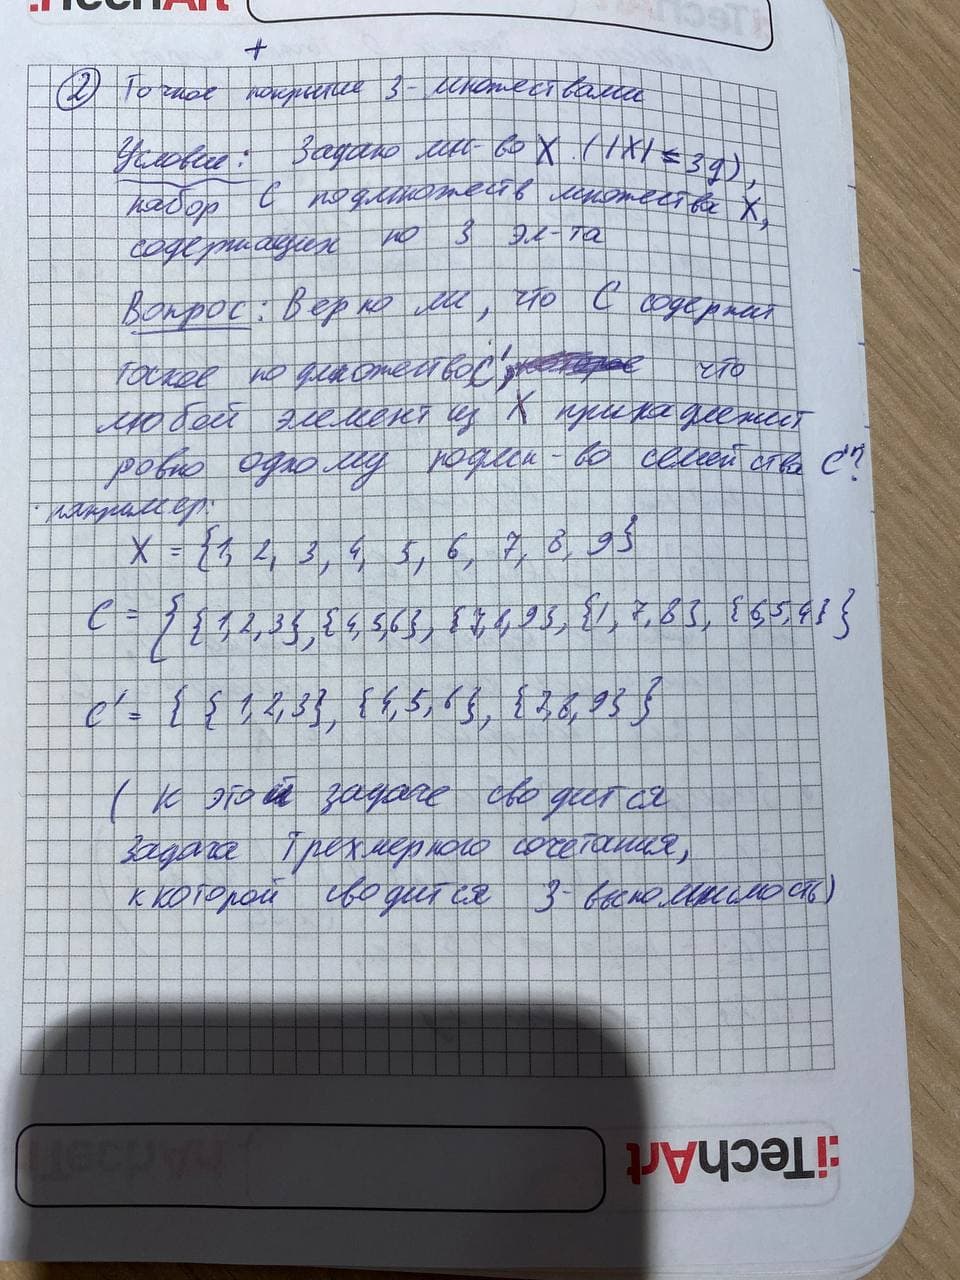 :iTechArt
:iTechArt
+
② Точное покрытие 3-множествами
Условие: Задано мн-во X (|X| = 3q),
набор C подмножеств множества X,
содержащих по 3 эл-та
Вопрос: Верно ли, что C содержит
такое подмножество C', что
любой элемент из X принадлежит
ровно одному подмн-во семейства C'?
например:
X = {1, 2, 3, 4, 5, 6, 7, 8, 9}
C = {{1,2,3}, {4,5,6}, {7,8,9}, {1,7,8}, {6,5,4}}
C' = {{1,2,3}, {4,5,6}, {7,8,9}}
(К этой задаче сводится
задача Трехмерного сочетания,
к которой сводится 3-выполнимость)
:iTechArt